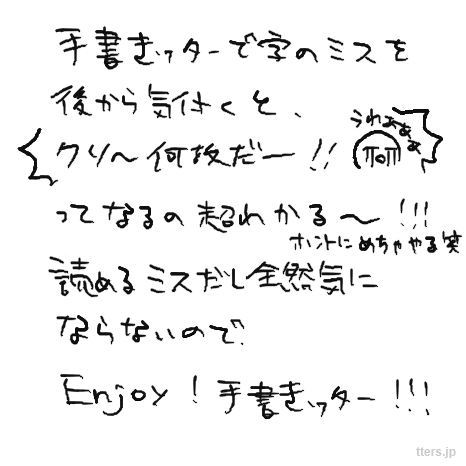 手書きッターで字のミスを
後から気付くと、
うれぁぁぁ
クソ〜何故だー!!
ってなるの超わかる〜!!!
ホントにめちゃやる笑
読めるミスだし全然気に
ならないので
Enjoy!手書きッター!!!
tters.jp